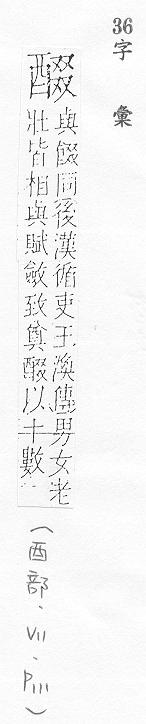 36
字彙
醊
與餟同後漢循吏王渙傳男女老
壯皆相與賦斂致奠醊以千數
(酉部·VII·P111)